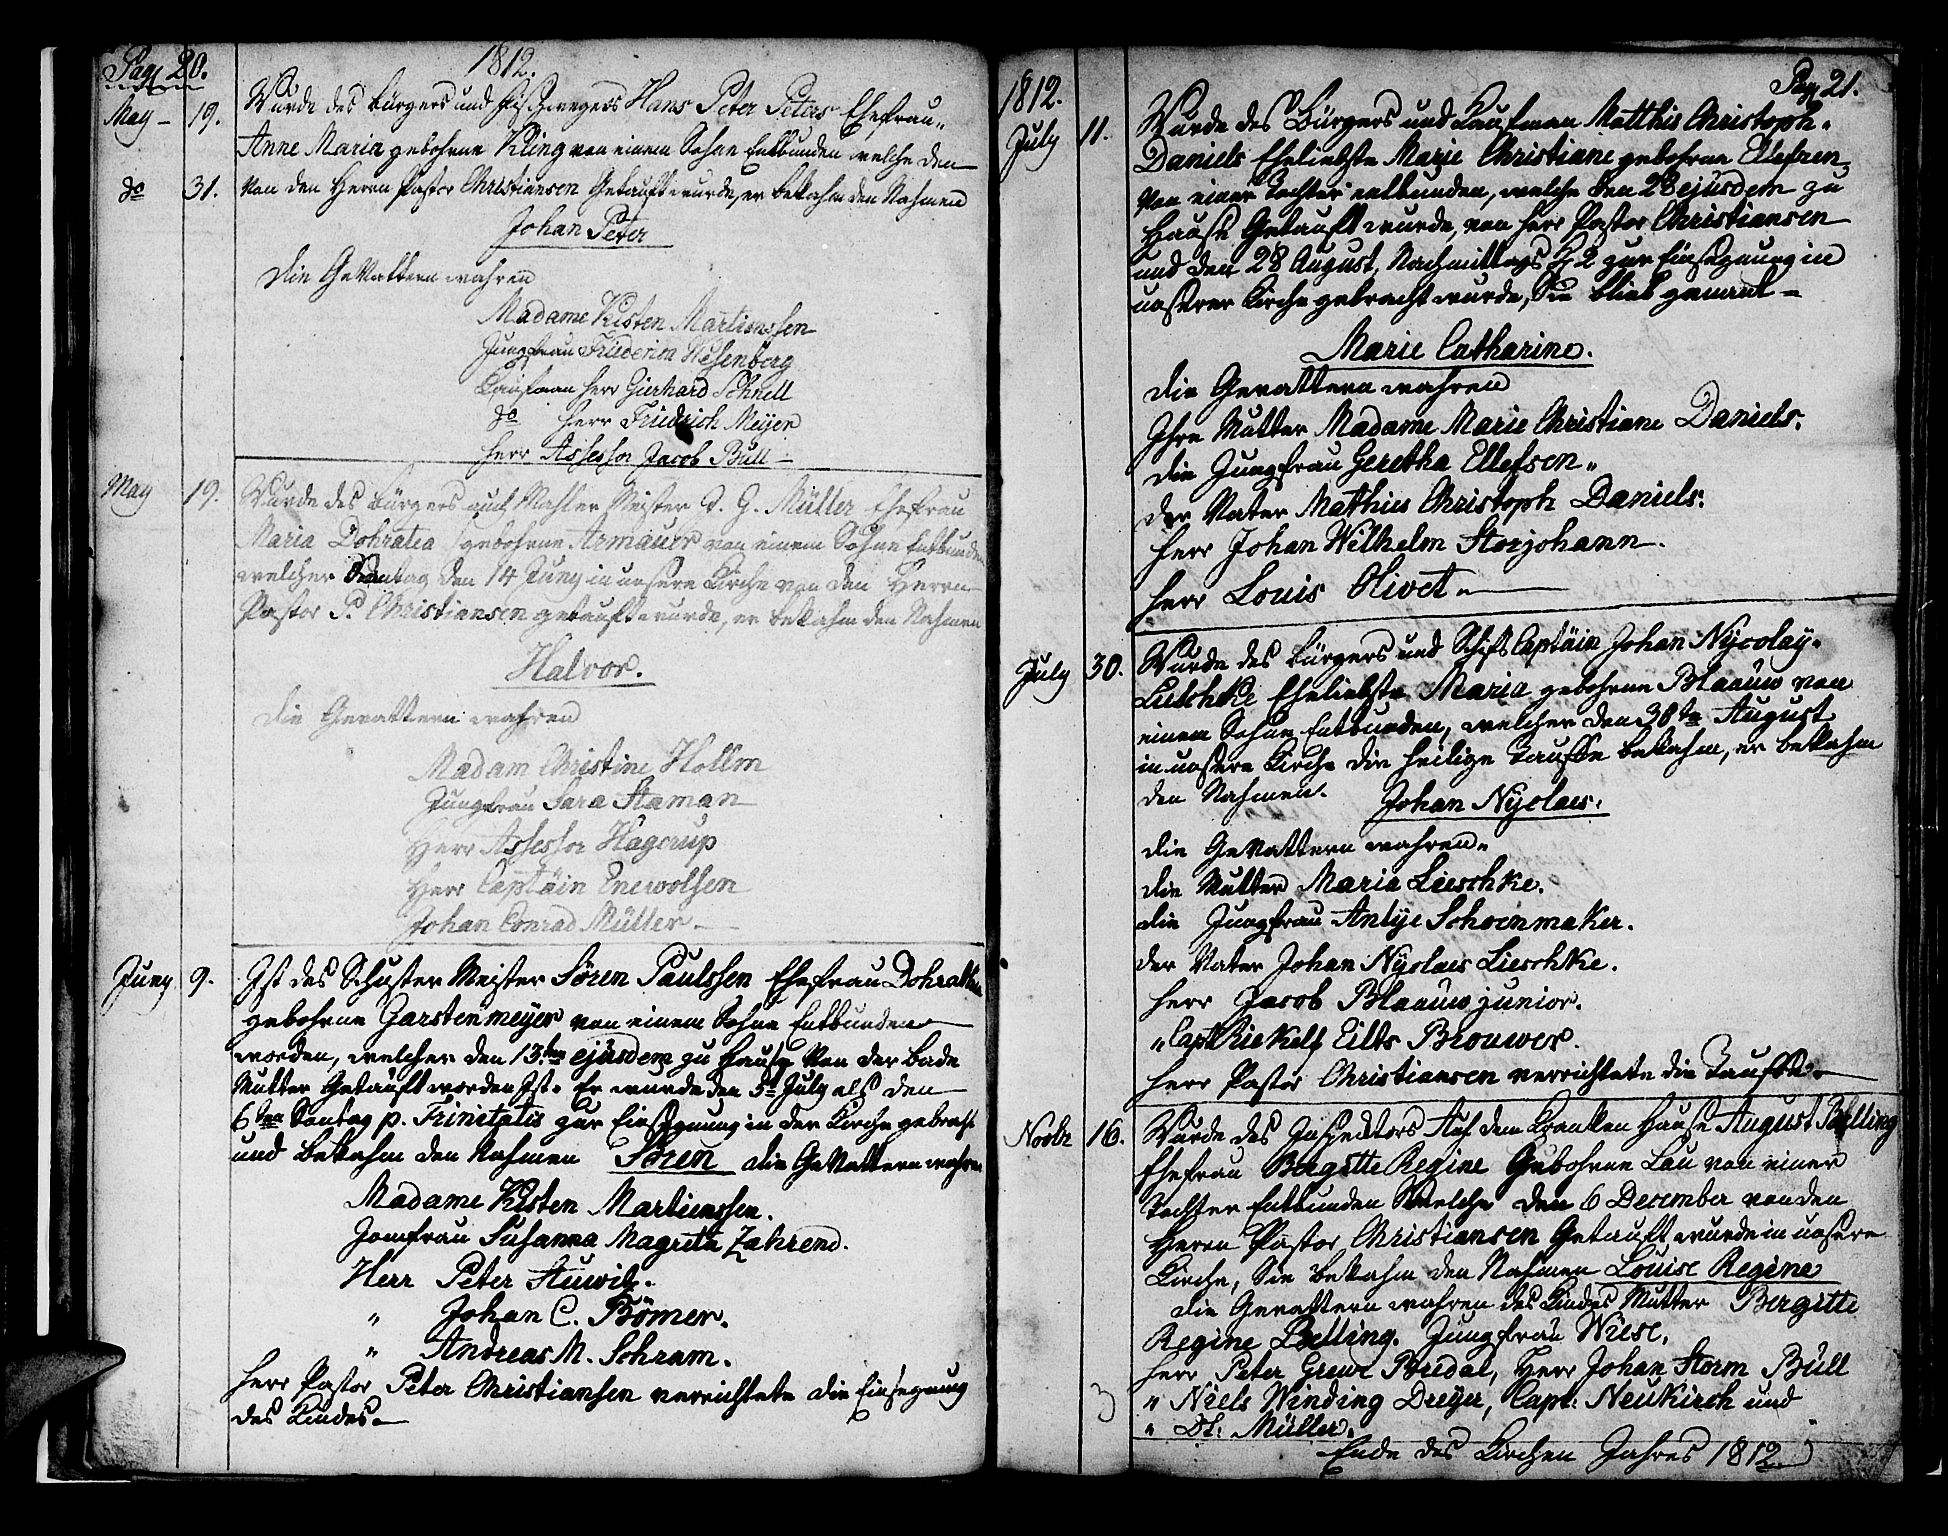 Pag 20.
1812.
May – 19. Wurde des Bürgers und Hans Peter Peters Ehefrau
Anne Maria gebohrne Kling von einem Sohne Entbunden welche den
do 31. von den Herrn Pastor Christiansen Getauft wurde, er bekahm den Nahmen
Johan Peter
die Gevattern wahren
Madame Kisten Martienssen
Jungfrau Friederica Wesenberg
Kaufman Herr Gierhard Schnell
do Herr Friedrich Meyer
Herr Assessor Jacob Bull
May 19. Wurde des Bürgers auch Mahler Meister D. G. Müller Ehefrau
Maria Dohratea gebohrne Armauer von einem Sohne Entbunden
welcher Sontag den 14 Juny in unsere Kirche von den Herrn
Pastor P. Christiansen getauft wurde, er bekahm den Nahmen
Halvor.
die Gevattern wahren
Madam Christine Hollm
Jungfrau Sara Staman
Herr Assessor Hagerup
Herr Captäin Enewolsen
Johan Conrad Müller.
Juny 9. Ist des Schuster Meister Sören Paulssen Ehefrau Dohrathea
gebohrne Garstenmeyer von einem Sohne Entbunden
worden, welcher den 13ten ejusdem zu Hause von der Bade
Mutter Getauft worden Ist. Er wurde den 5t July als den
6ten Sontag p. Trinitatis zur Einsegnung in der Kirche gebracht
und bekahm den Nahmen Sören die Gevattern wahren
Madame Kisten Martienssen.
Jomfrau Susanna Magreta Zahrend.
Herr Peter Stuwitz.
" Johan C. Bömer.
" Andreas M. Schram.
Herr Pastor Peter Christiansen verrichtete die Einsegnung
des Kindes.
Pag 21.
1812.
July 11. Wurde des Bürgers und Kaufman Matthis Christoph
Daniels Eheliebste Marie Christiane gebohrne Ellefsen
von einer Tochter entbunden, welche den 28 ejusdem zu
Hause Getauft wurde, von Herr Pastor Christiansen
und den 28 August, Nachmittags 2 zur Einsegnung in
unserer Kirche gebracht wurde, Sie blieb genant –
Marie Catharine.
die Gevattern wahren
Ihre Mutter Madame Marie Christiane Daniels.
die Jungfrau Geretha Ellefsen
der Vater Mathies Christoph Daniels.
Herr Johan Wilhelm Storjohann.
Herr Louis Olivet.
July 30. Wurde des Bürgers und Schifs Captäin Johan Nycolay
Lieschke Eheliebste Maria gebohrne Blaauw von
einem Sohne Entbunden, welcher den 30te August
in unsere Kirche die heilige Tauffe bekahm, er bekahm
den Nahmen. Johan Nycolaes.
die Gevattern wahren
die Mutter Maria Lieschke.
die Jungfrau Antye Schoenmaker.
der Vater Johan Nycolaes Lieschke.
Herr Jacob Blaauw junior.
" Capt Riekels Eilts Brouwer.
Herr Pastor Christiansen verrichtete die Tauffe.
Novbr 16. Wurde des Inspektors Auf dem Kranken Hause August Belling
Ehefrau Bergitte Regine Gebohrne Lau von einer
Tochter Entbunden Welche den 6 December von den
Herrn Pastor Christiansen Getauft wurde in unsere
Kirche, Sie bekahm den Nahmen Louise Regine
die Gevattern wahren des Kindes Mutter Bergitte
Regine Belling. Jungfrau Wiese.
Herr Peter Greve Bredal, Herr Johan Storm Bull
" Niels Winding Dreyer, Capt: Neukirch und
" Dt: Müller.
3
Ende des Kirchen Jahres 1812